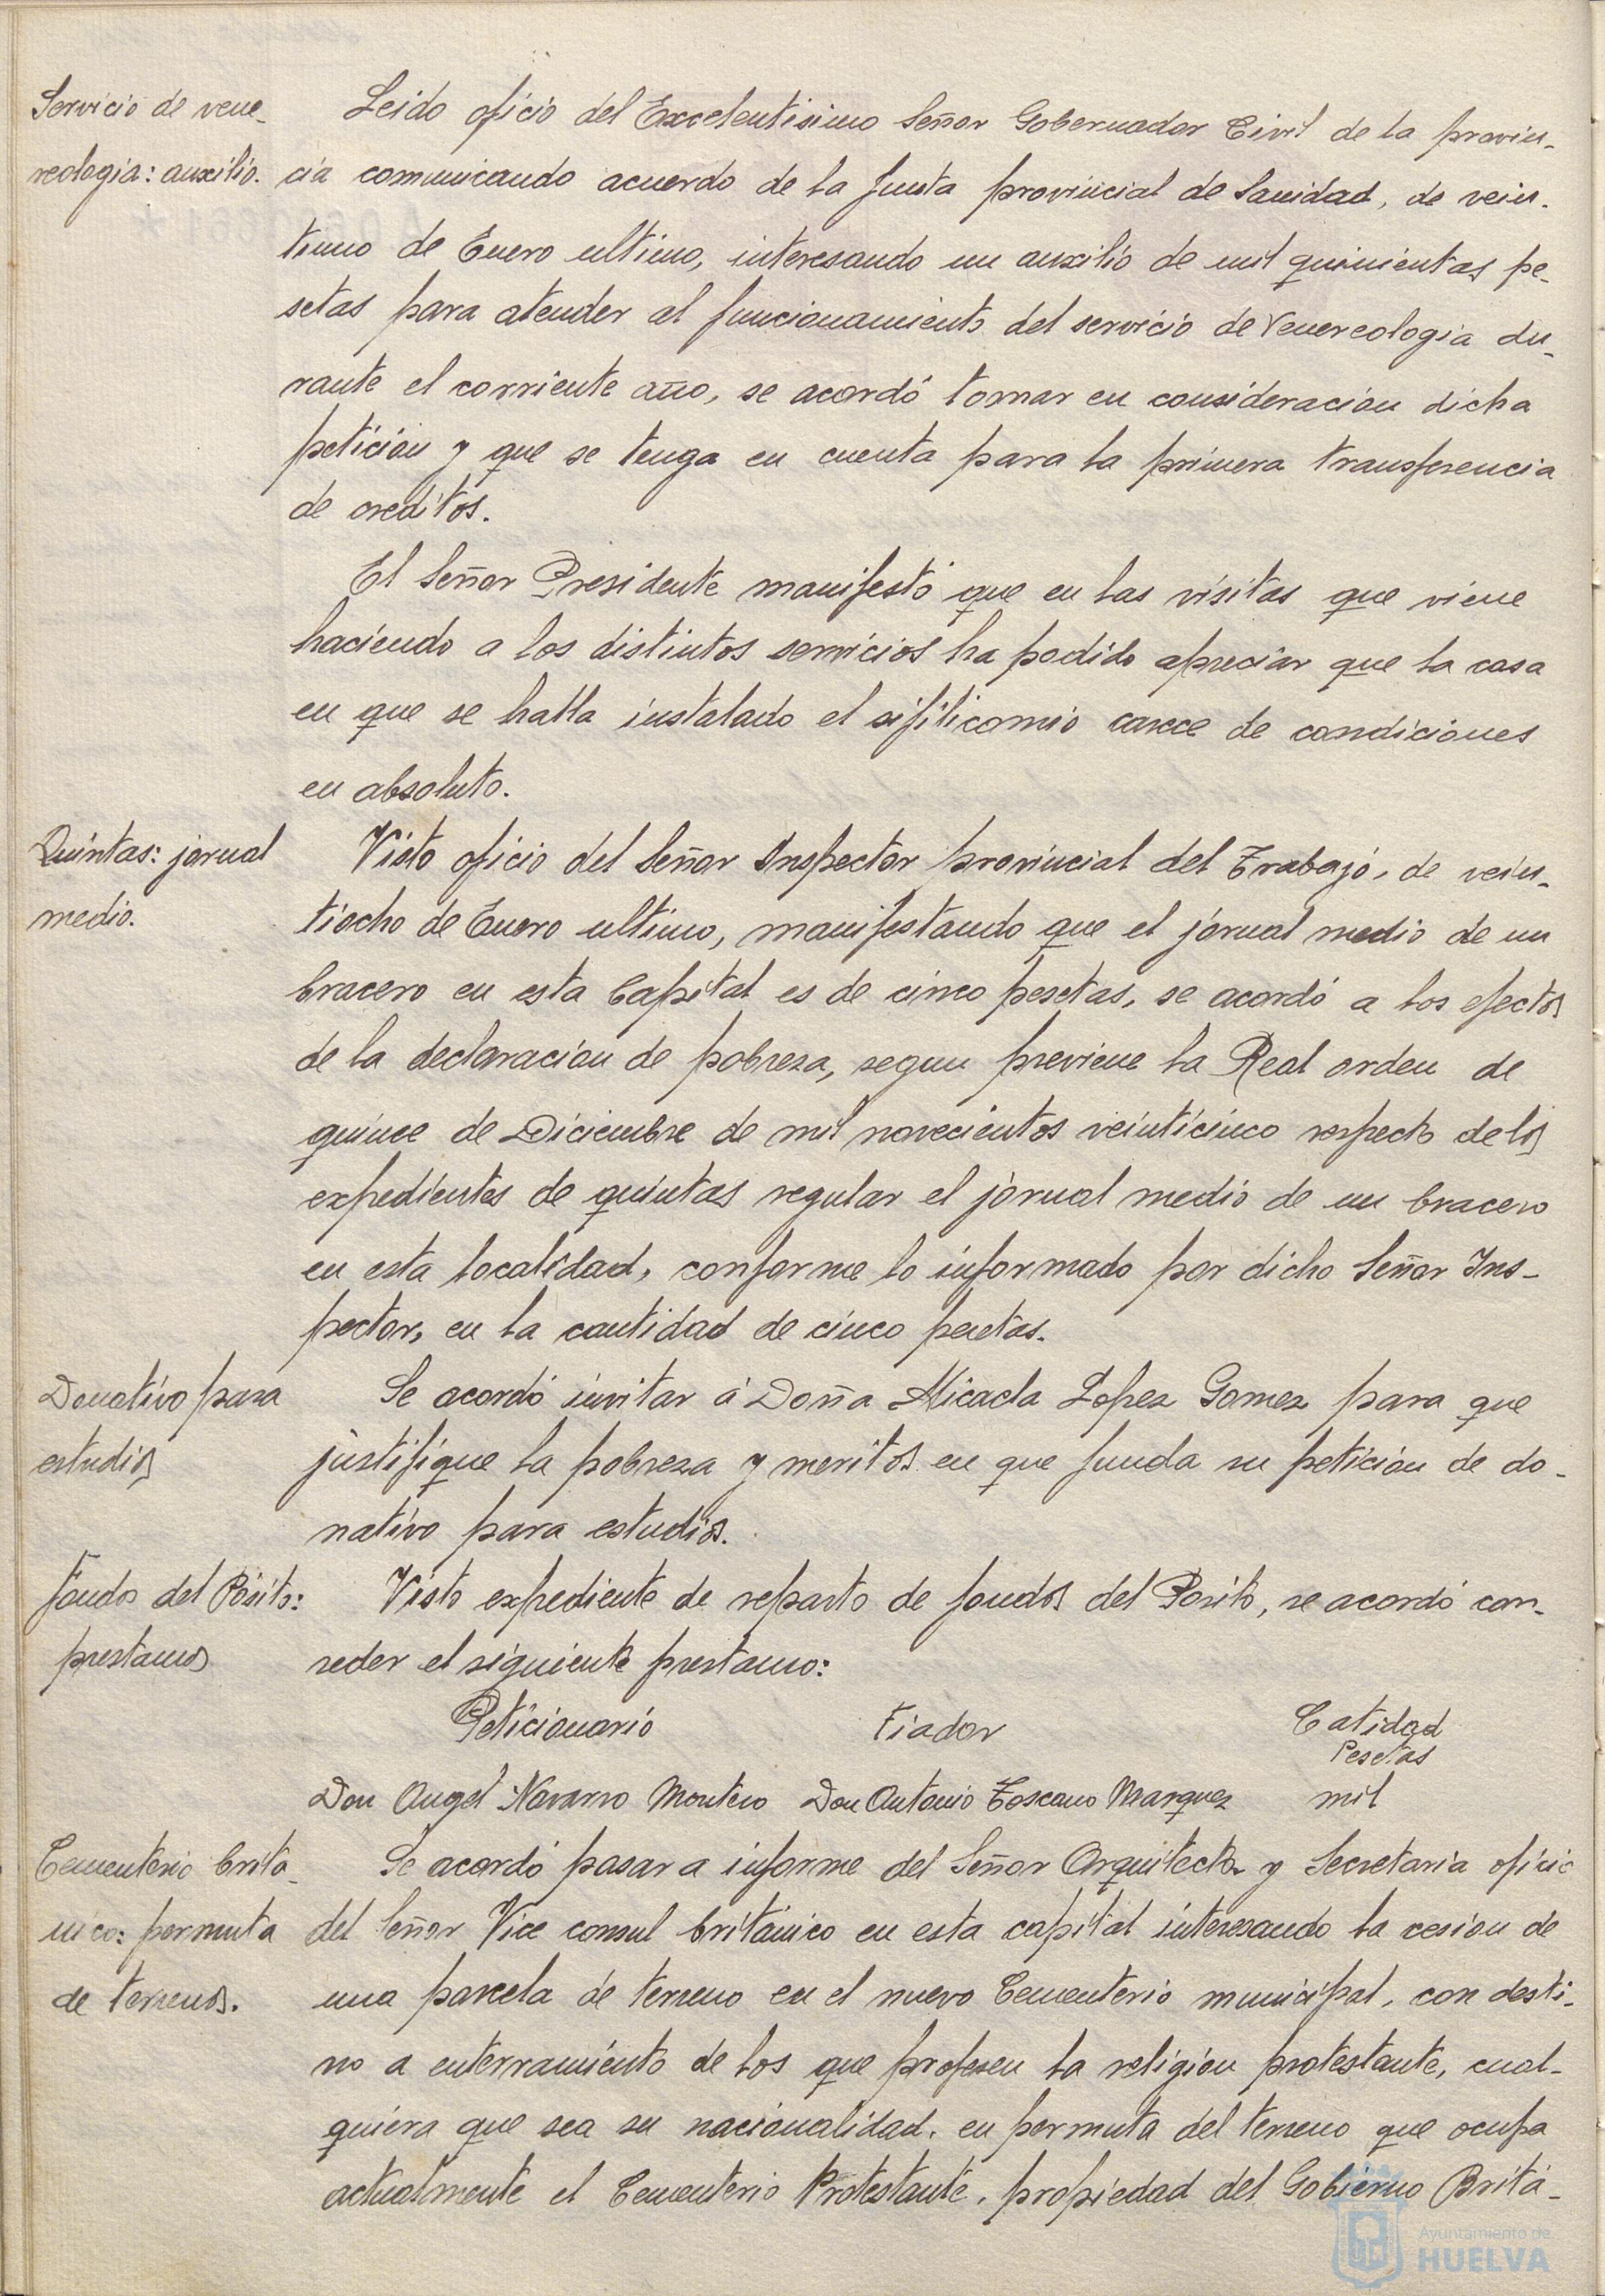 Servicio de vene-
reologia: auxilio.
Leido oficio del Excelentisimo Señor Gobernador Civil de la provin-
cia comunicando acuerdo de la Junta provincial de Sanidad, de vein-
tiuno de Enero ultimo, interesando un auxilio de mil quinientas pe-
setas para atender al funcionamiento del servicio de Venereologia du-
rante el corriente año, se acordó tomar en consideracion dicha
peticion y que se tenga en cuenta para la primera transferencia
de creditos.
El Señor Presidente manifestó que en las visitas que viene
haciendo a los distintos servicios ha podido apreciar que la casa
en que se halla instalado el sifilicomio carece de condiciones
en absoluto.
Quintas: jornal
medio.
Visto oficio del Señor Inspector provincial del Trabajo, de vein-
tiocho de Enero ultimo, manifestando que el jornal medio de un
bracero en esta Capital es de cinco pesetas, se acordó a los efectos
de la declaracion de pobreza, segun previene la Real orden de
quince de Diciembre de mil novecientos veinticinco respecto de los
expedientes de quintas regular el jornal medio de un bracero
en esta localidad, conforme lo informado por dicho Señor Ins-
pector, en la cantidad de cinco pesetas.
Donativo para
estudios
Se acordó invitar á Doña Micaela Lopez Gomez para que
justifique la pobreza y meritos en que funda su peticion de do-
nativo para estudios.
Fondos del Pósito:
prestamos
Visto expediente de reparto de fondos del Posito, se acordó con-
ceder el siguiente prestamo:
Peticionario Fiador Catidad
Pesetas
Don Angel Navarro Montero Don Antonio Toscano Marquez mil
Cementerio britá-
nico: permuta
de terrenos.
Se acordó pasar a informe del Señor Arquitecto y Secretaria oficio
del Señor Vice consul británico en esta capital interesando la cesion de
una parcela de terreno en el nuevo Cementerio municipal, con desti-
no a enterramiento de los que profesen la religion protestante, cual-
quiera que sea su nacionalidad, en permuta del terreno que ocupa
actualmente el Cementerio Protestante, propiedad del Gobierno Britá-
Ayuntamiento de
HUELVA